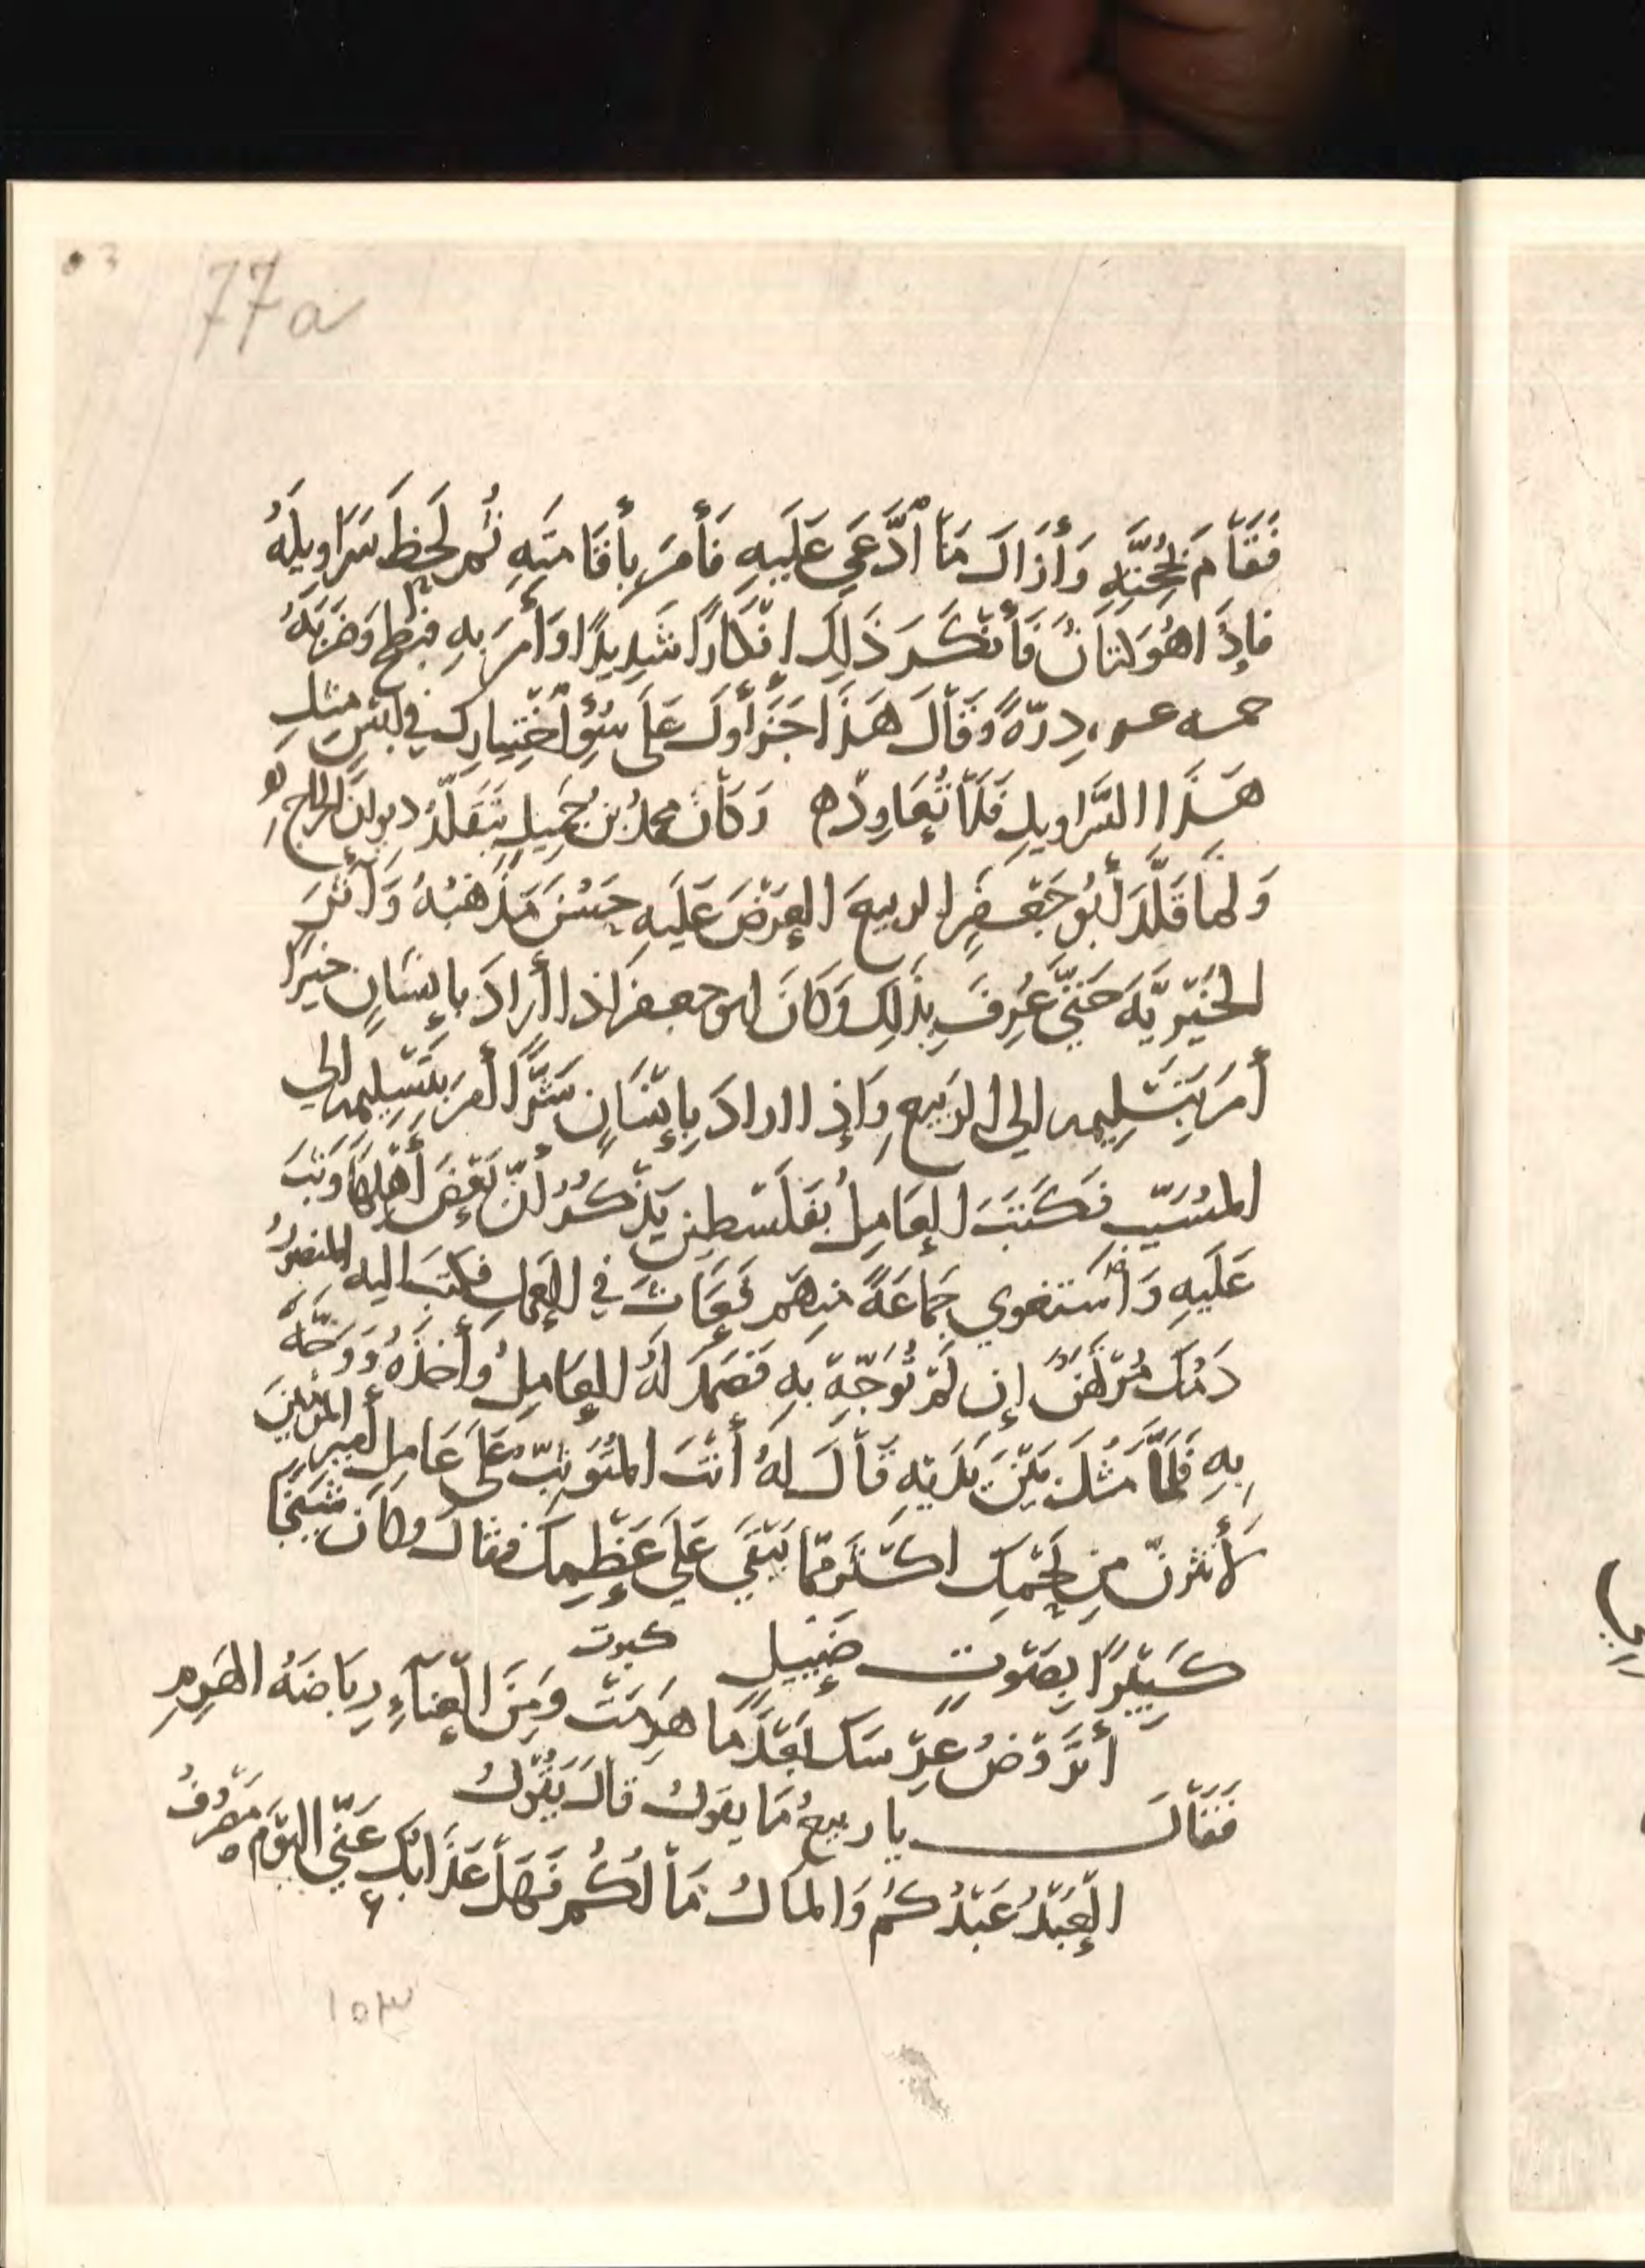 77a
فَقَامَ بِحُجَّتِهِ وَأَزَالَ مَا ادَّعَي عَلَيهِ فَأَمَرَ بِأقَامَتِهِ ثُم لَحِظَ سَرَاوِيلَهُ
فإِذَا هُوَ كتانٌ فَأَنْكَرَ ذَلِكَ إِنْكَارًا شَدِيدًا وَأَمَرَ بِهِ فبطح وَضَرَبَهُ
خمسه عسر دِرَّةً وَقَالَ هَذَا جَزَاؤُكَ عَلَى سُوْءِ اخْتِيارِكَ في لبْسِ مِثلِ
هَذَا السَّرَاوِيلِ فَلَا تُعَاوِدْه وَكَانَ محمدُ بنُ جَمِيلٍ يَتَقَلَّدُ دِيوانَ الخراج لَهُ
وَلما قَلَّدَ أَبُو جَعْفَرٍ الربيعَ العَرْضَ عَلَيهِ حَسُنَ مَذْهَبُهُ وَآثَرَ
الخَيْرِيَّهَ حَتَّى عُرِفَ بِذَلِكَ وَكَانَ ابو جعفر اذا أَرَادَ بِإِنْسَانٍ خيرًا
أَمَرَ بِتَسْلِيمه الي الربيعِ وَإِذا اراد بِإِنْسَانٍ شَرًّا أَمَرَ بِتَسْلِيمه الي
المُسَيّب فكَتَبَ العَامِلُ بفَلَسْطِين يَذْكُرُ أَنَّ بَعْضَ أَهْلِهَا وَثَبَ
عَلَيهِ وَاسْتَغوي جَمَاعَةً مِنهُم وَعَاثَ في العَمَلِ فكتبَ اليه المنصورُ
دَمُكَ مُرْتَهَنٌ إِن لَمْ تُوَجِّهْ بِهِ فَصَمَدَ لَهُ العَامِلُ وَأَخَذَهُ وَوَجَّهَ
بِهِ فَلَمَّا مَثُلَ بَيْنَ يَدَيْهِ قَالَ لهُ أَنْتَ المُتَوَثِّبُ عَلَى عَامِلِ أَمِيرِ المؤمنينَ
لأَنثُرَنَّ مِن لَحْمِكَ اكْثَرَ مِمَّا يَبْقَي عَلَي عَظْمِكَ فقال وكَانَ شَيْخًا
كَبِيْرًا بِصَوْتٍ ضَئِيلٍ
كبرت
أَتَرُوضُ عِرْسَكَ بَعْدَمَا هَرِمَتْ وَمِنَ العَنَاءِ رِيَاضَهُ الهَرِمِ
فَقَالَ يا ربيعُ مَا يقول قالَ يَقُولُ
العَبْدُ عَبْدُكُم وَالمالُ مَالُكُم فَهَلْ عَذَابُكَ عَنِّي اليَوْمَ مَصْرُوفُ
١٥٣